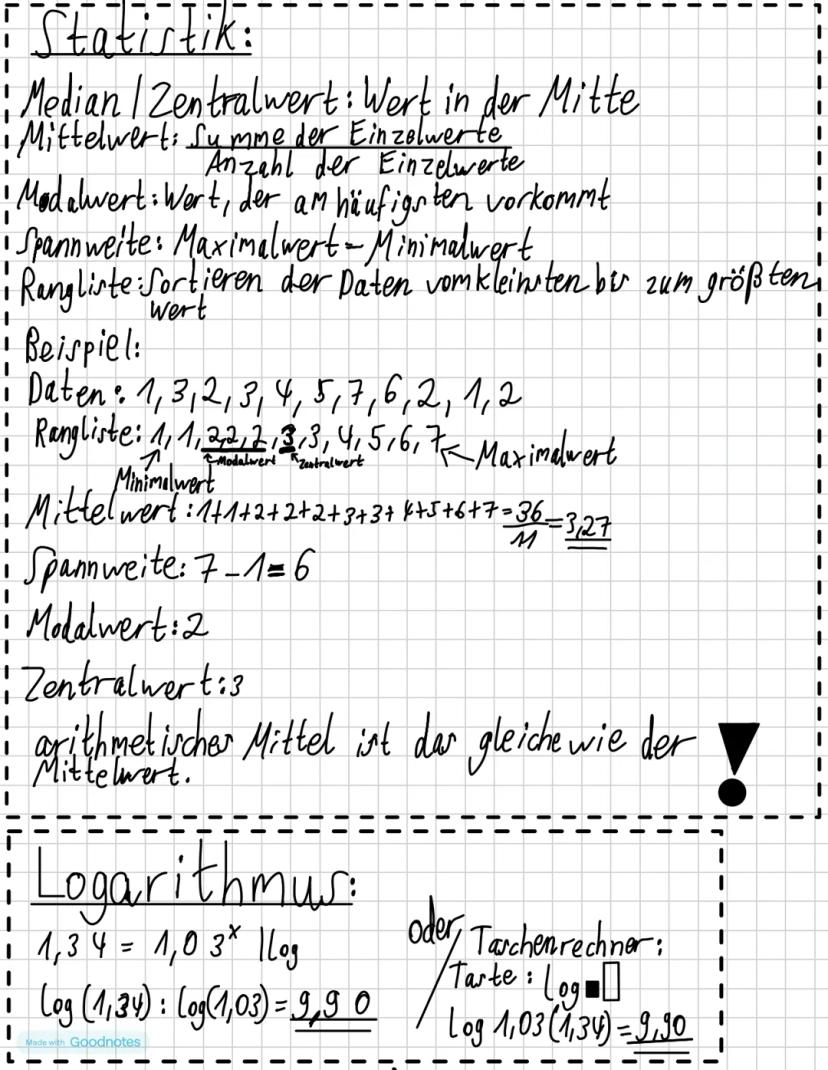 Statistik:
Median / Zentralwert: Wert in der Mitte
Mittelwert: Summe der Einzelwerte
Anzahl der Einzelwerte
Modalwert: Wert, der am häufigsten vorkommt
Spannweite: Maximalwert - Minimalwert
Rangliste: Sortieren der Daten vom kleinsten bis zum größten
Wert
Beispiel:
Daten: 1, 3, 2, 3, 4, 5, 7, 6, 2, 1, 2
Rangliste: 1, 1, 2, 2, 2, 3, 3, 4, 5, 6, 7 Maximalwert
Modalwert Zentralwert
Minimalwert
Mittelwert: 1+1+2+2+2+3+3+4+5+6+7 = 36/11 = 3,27
Spannweite: 7 - 1 = 6
Modalwert: 2
Zentralwert: 3
arithmetisches Mittel ist das gleiche wie der !
Mittelwert.
Logarithmus:
1,34 = 1,03ˣ |log
log (1,34) : log(1,03) = 9,90
oder
Taschenrechner:
Taste: log■□
log 1,03 (1,34) = 9,90
Made with Goodnotes